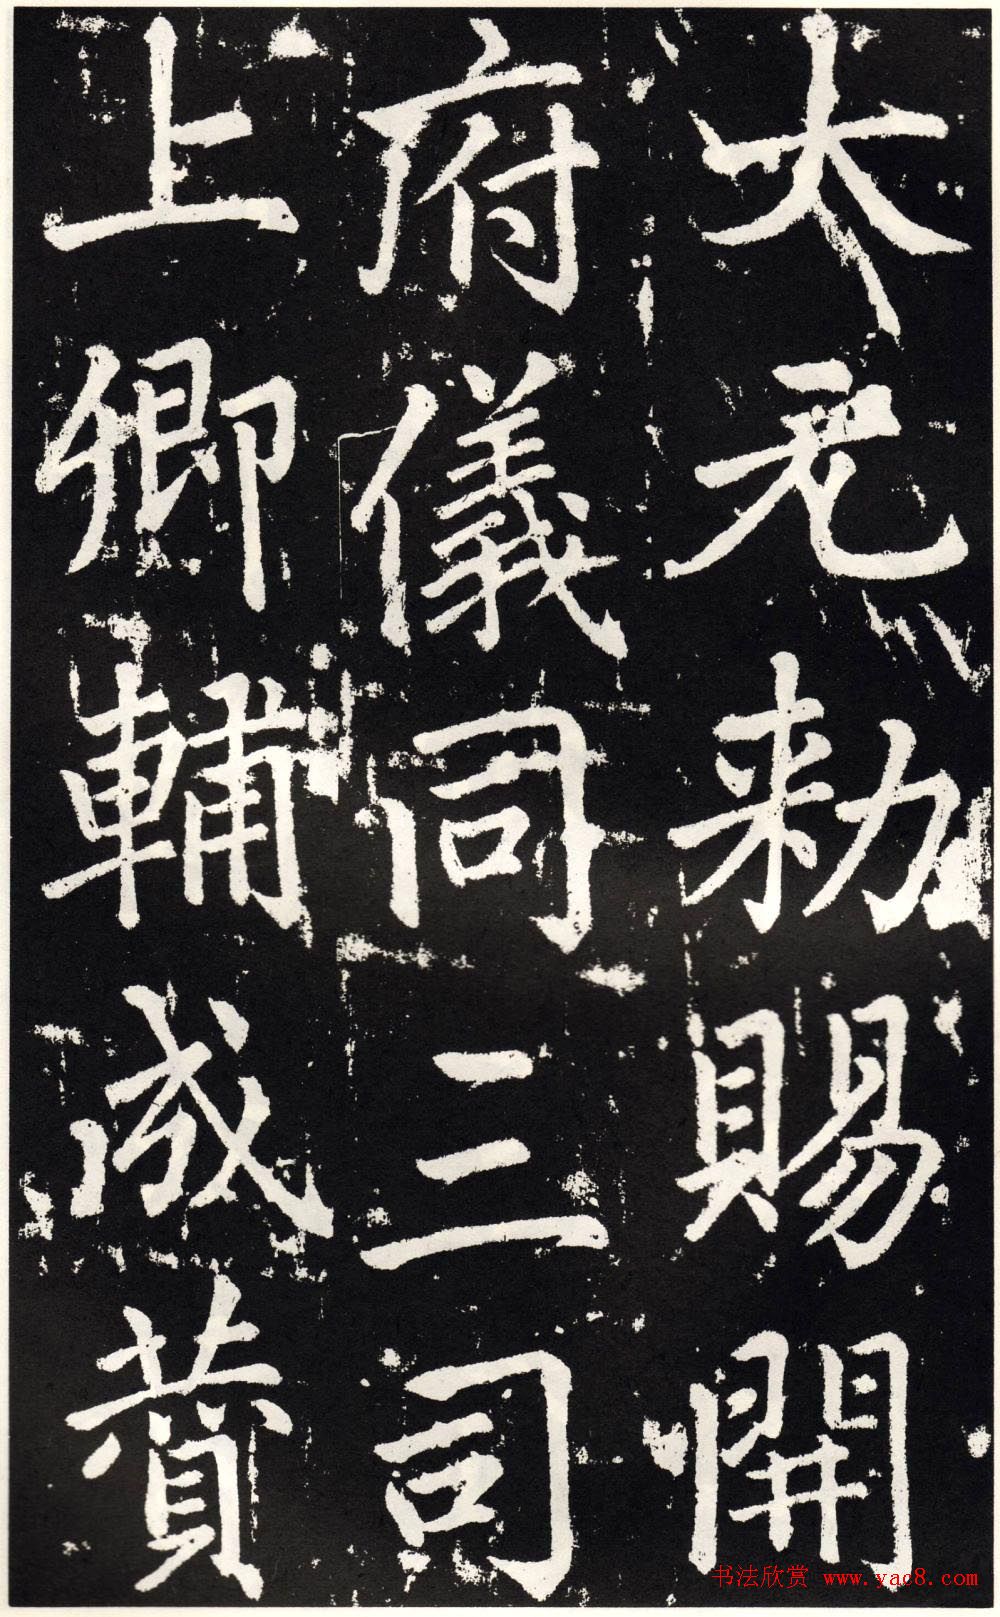 大元勑賜開
府儀同三司
上卿輔成賛
书法欣赏 www.yac8.com